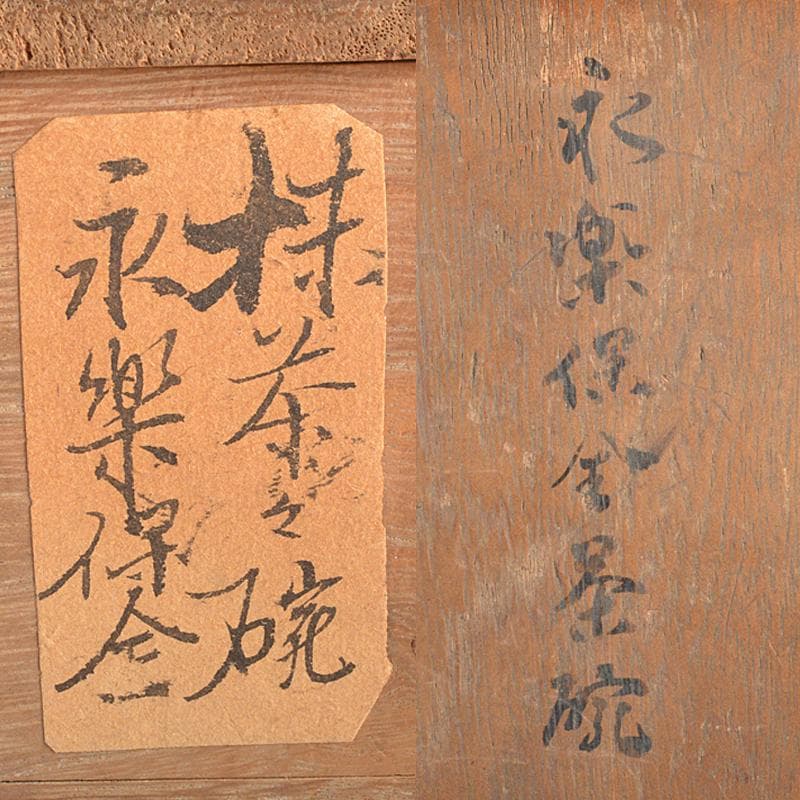 抹茶々碗
永樂保全
永楽保全茶碗